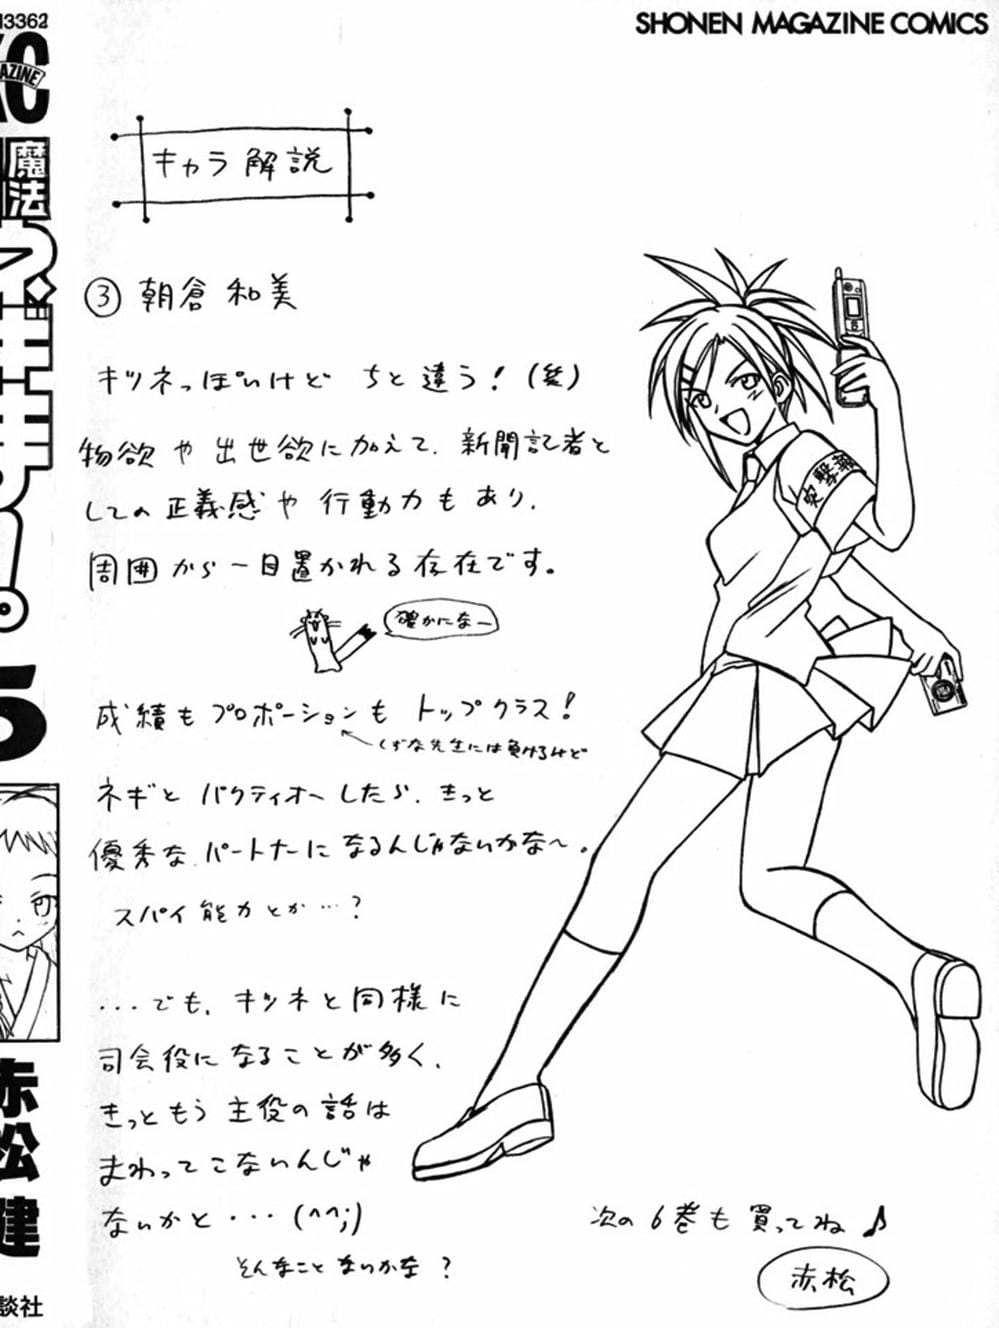 SHONEN MAGAZINE COMICS
13362
魔法
ネギま!。
5
赤松健
談社
キャラ解説
③ 朝倉和美
キツネっぽいけど ちと違う!(笑)
物欲や出世欲に加えて、新聞記者と
しての正義感や行動力もあり、
周囲から一目置かれる存在です。
確かになー
成績もプロポーションもトップクラス!
しずな先生には負けるけど
ネギとパクティオーしたら、きっと
優秀なパートナーになるんじゃないかな〜。
スパイ能力とか…?
...でも、キツネと同様に
司会役になることが多く、
きっともう主役の話は
まわってこないんじゃ
ないかと・・・(^^;)
そんなことないかな?
突撃報
次の6巻も買ってね♪
赤松